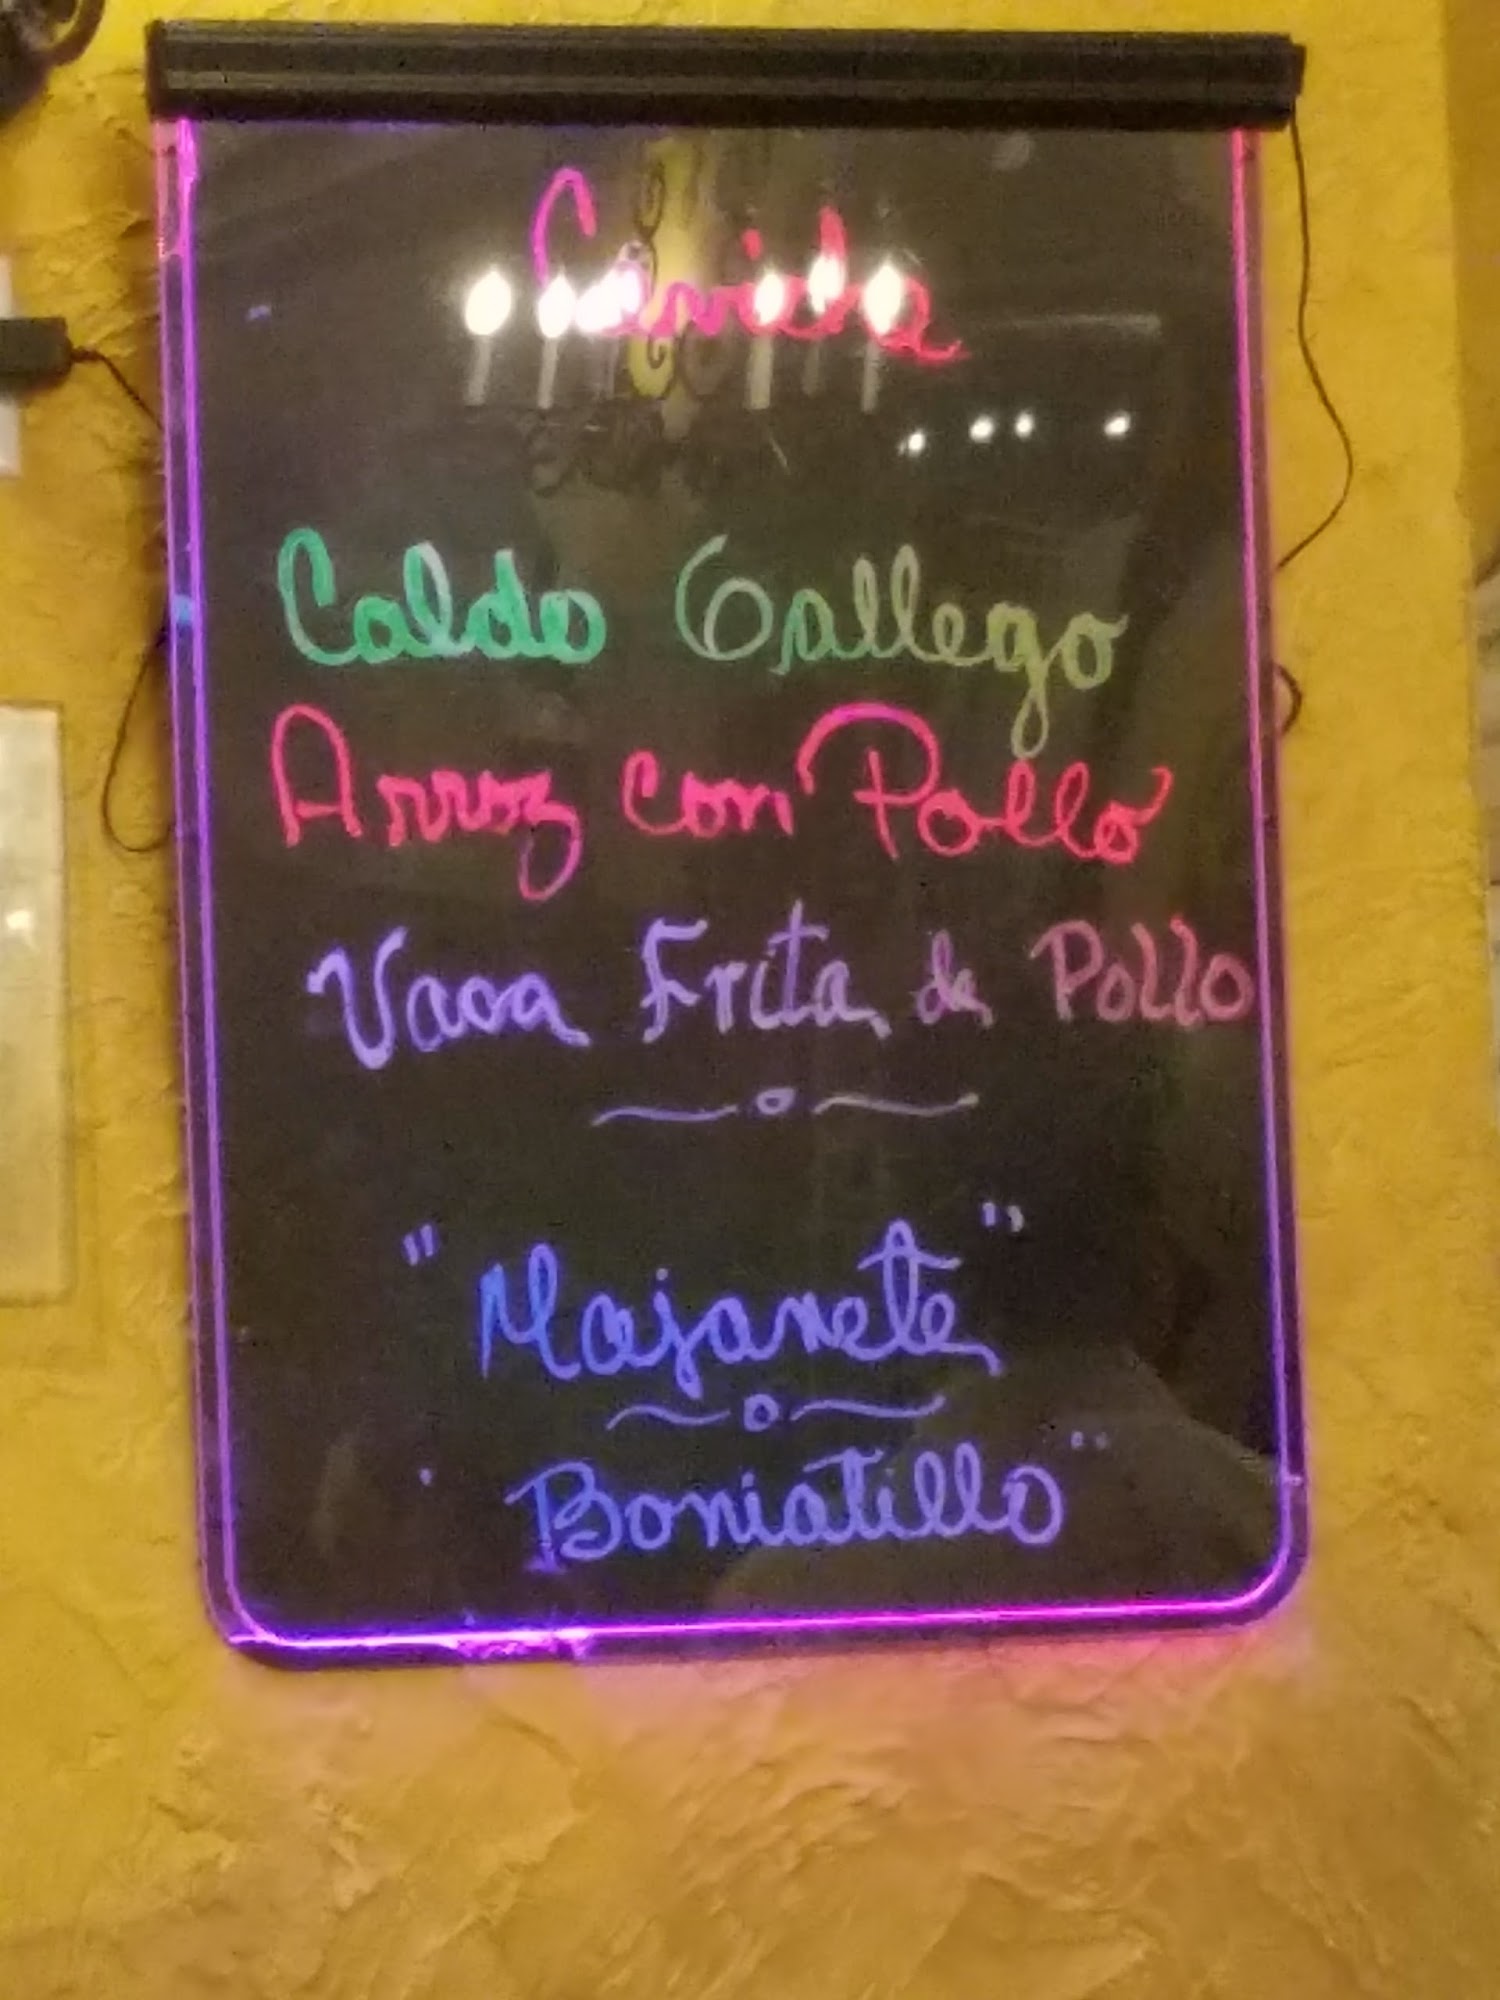 Caldo Gallego
Arroz con Pollo
Vaca Frita de Pollo
"Majarete"
"Boniatillo"